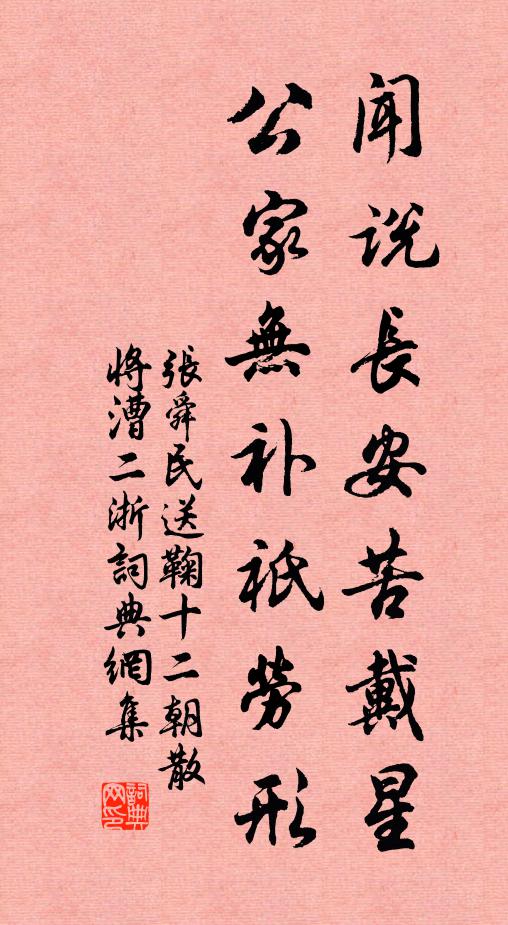 闻说長安苦戴星
公家無补祇勞形
張舜民送鞠十二朝散
将漕二浙詞典網集
詞典网印